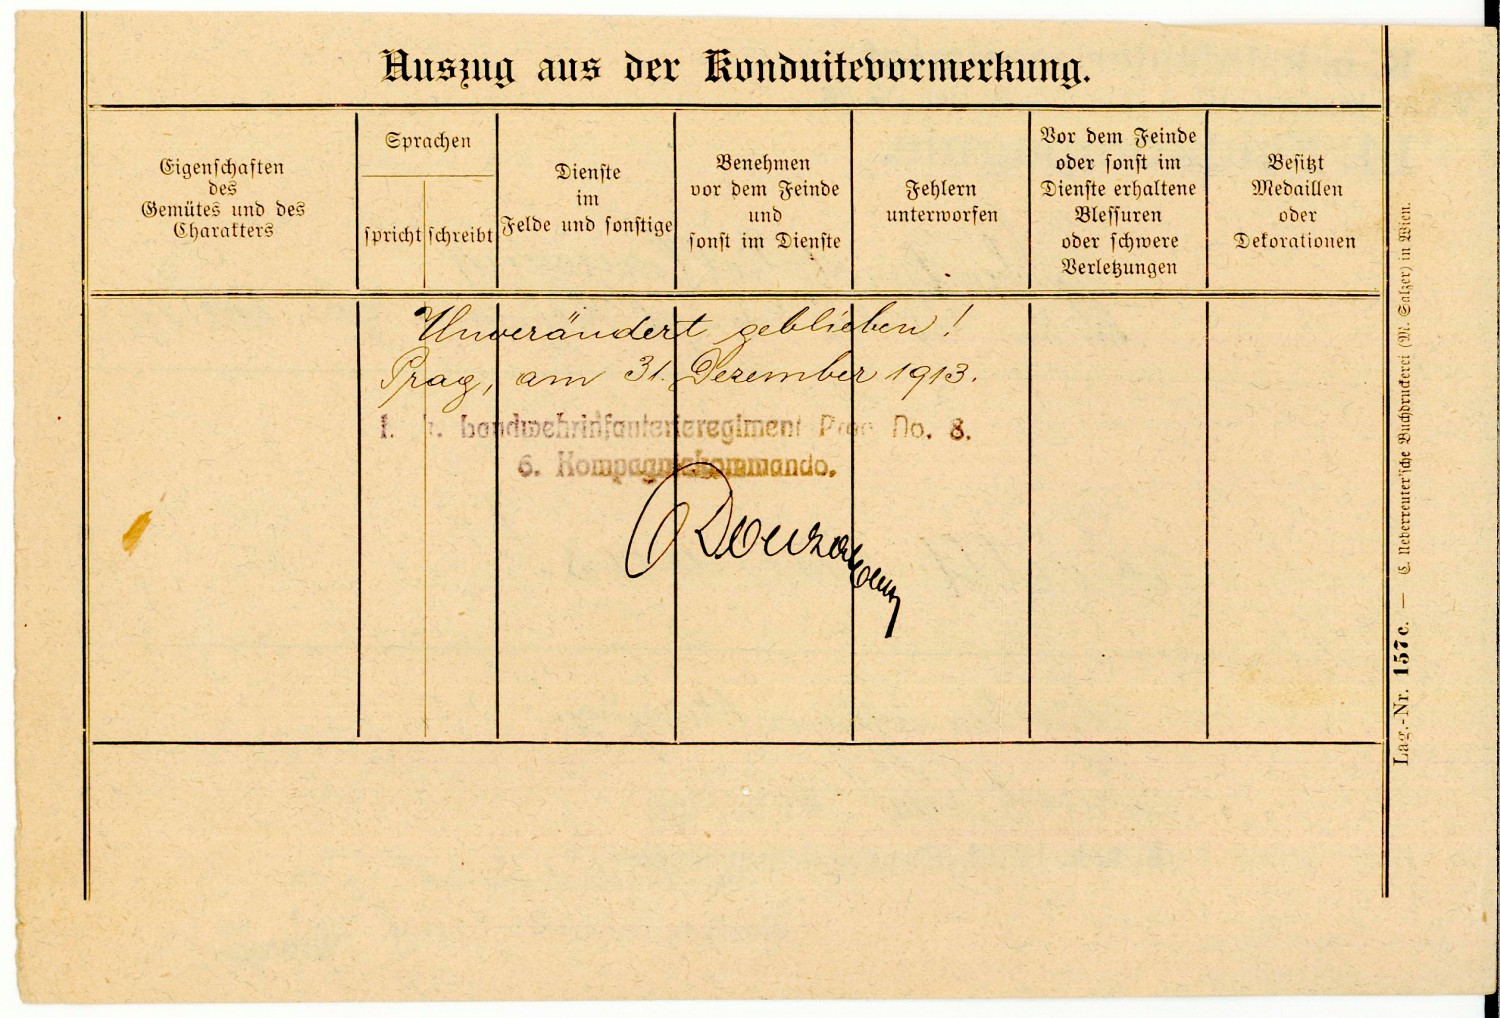 Auszug aus der Konduitevormerkung.
Eigenschaften
des
Gemütes und des
Charakters
Sprachen
spricht
schreibt
Dienste
im
Felde und sonstige
Benehmen
vor dem Feinde
und
sonst im Dienste
Fehlern
unterworfen
Vor dem Feinde
oder sonst im
Dienste erhaltene
Blessuren
oder schwere
Verletzungen
Besitzt
Medaillen
oder
Dekorationen
Unverändert geblieben!
Prag, am 31. Dezember 1913.
k. k. Landwehrinfanterieregiment Prag No. 8.
6. Kompagniekommando.
Lag.-Nr. 157c. — C. Ueberreuter'sche Buchdruckerei (M. Salzer) in Wien.